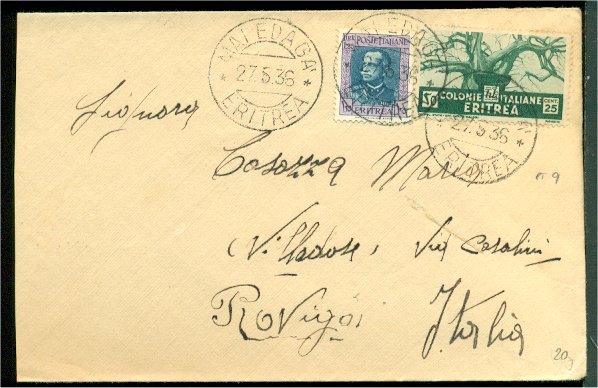 MALEDAGA
27.5.36
ERITREA
POSTE ITALIANE
ERITREA
COLONIE ITALIANE
ERITREA
50
CENT
25
27.5.36
ERITREA
Signora
Casazza Maria
Villadose, Via Casalini
Rovigo
Italia
20